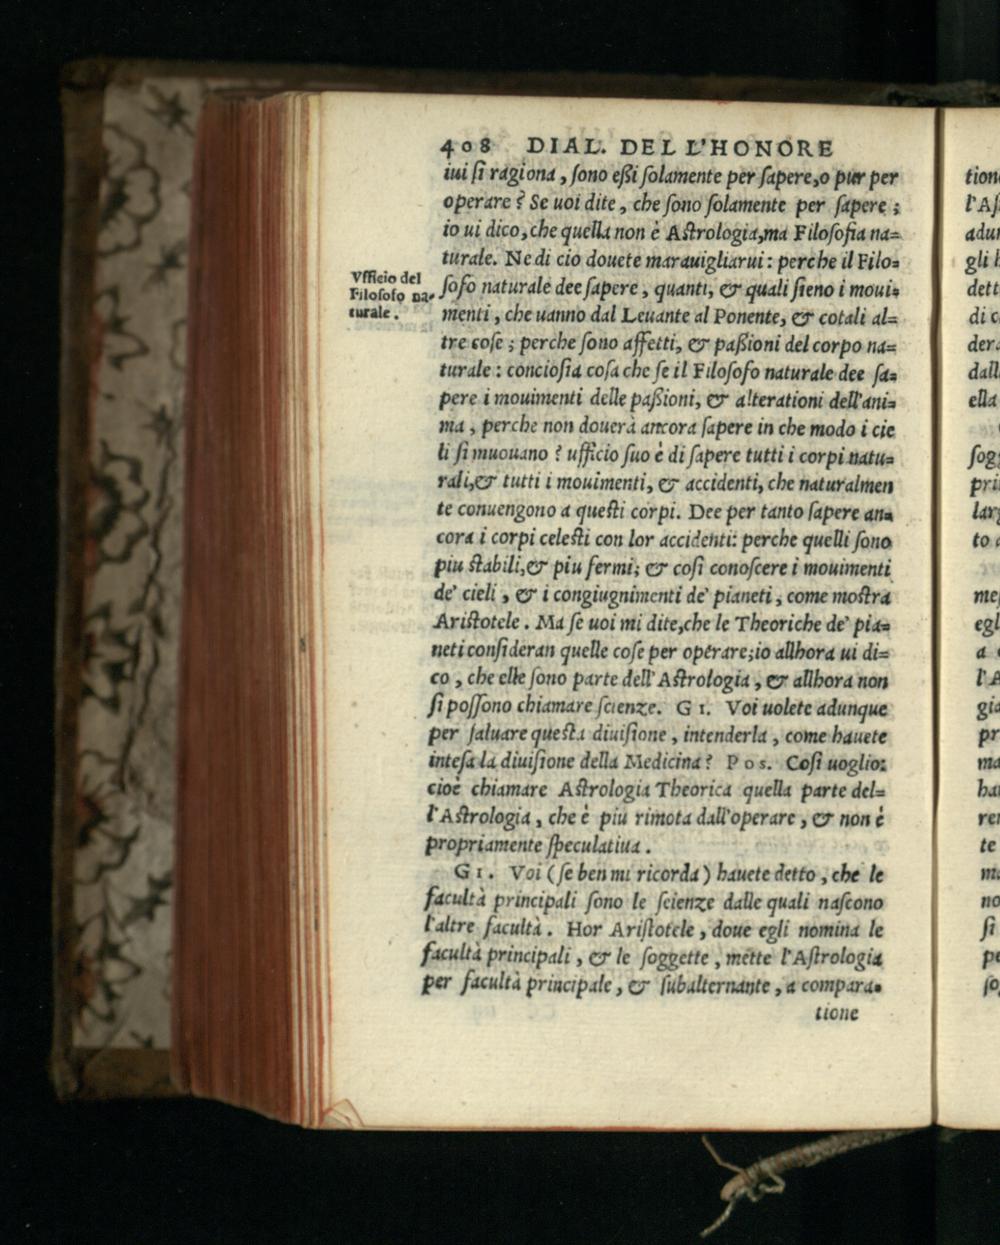 408 DIAL. DEL L'HONORE
iui ſi ragiona, ſono eßi ſolamente per ſapere, o pur per
operare? Se uoi dite, che ſono ſolamente per ſapere;
io ui dico, che quella non è Aſtrologia, ma Filoſofia na=
turale. Ne di cio douete marauigliarui: perche il Filo=
Vfficio del
Filoſofo na-
turale.
ſofo naturale dee ſapere, quanti, & quali ſieno i moui=
menti, che uanno dal Leuante al Ponente, & cotali al=
tre coſe; perche ſono affetti, & paßioni del corpo na=
turale: concioſia coſa che ſe il Filoſofo naturale dee ſa=
pere i mouimenti delle paßioni, & alterationi dell'ani=
ma, perche non douerà ancora ſapere in che modo i cie
li ſi muouano? ufficio ſuo è di ſapere tutti i corpi natu=
rali, & tutti i mouimenti, & accidenti, che naturalmen
te conuengono a queſti corpi. Dee per tanto ſapere an=
cora i corpi celeſti con lor accidenti: perche quelli ſono
piu ſtabili, & piu fermi; & coſi conoſcere i mouimenti
de' cieli, & i congiugnimenti de' pianeti, come moſtra
Ariſtotele. Ma ſe uoi mi dite, che le Theoriche de' pia=
neti conſideran quelle coſe per operare; io allhora ui di=
co, che elle ſono parte dell'Aſtrologia, & allhora non
ſi poſſono chiamare ſcienze. GI. Voi uolete adunque
per ſaluare queſta diuiſione, intenderla, come hauete
inteſa la diuiſione della Medicina? Pos. Coſi uoglio:
cioè chiamare Aſtrologia Theorica quella parte del=
l'Aſtrologia, che è piu rimota dall'operare, & non è
propriamente ſpeculatiua.
GI. Voi (ſe ben mi ricorda) hauete detto, che le
facultà principali ſono le ſcienze dalle quali naſcono
l'altre facultà. Hor Ariſtotele, doue egli nomina le
facultà principali, & le ſoggette, mette l'Aſtrologia
per facultà principale, & ſubalternante, a compara-
tione